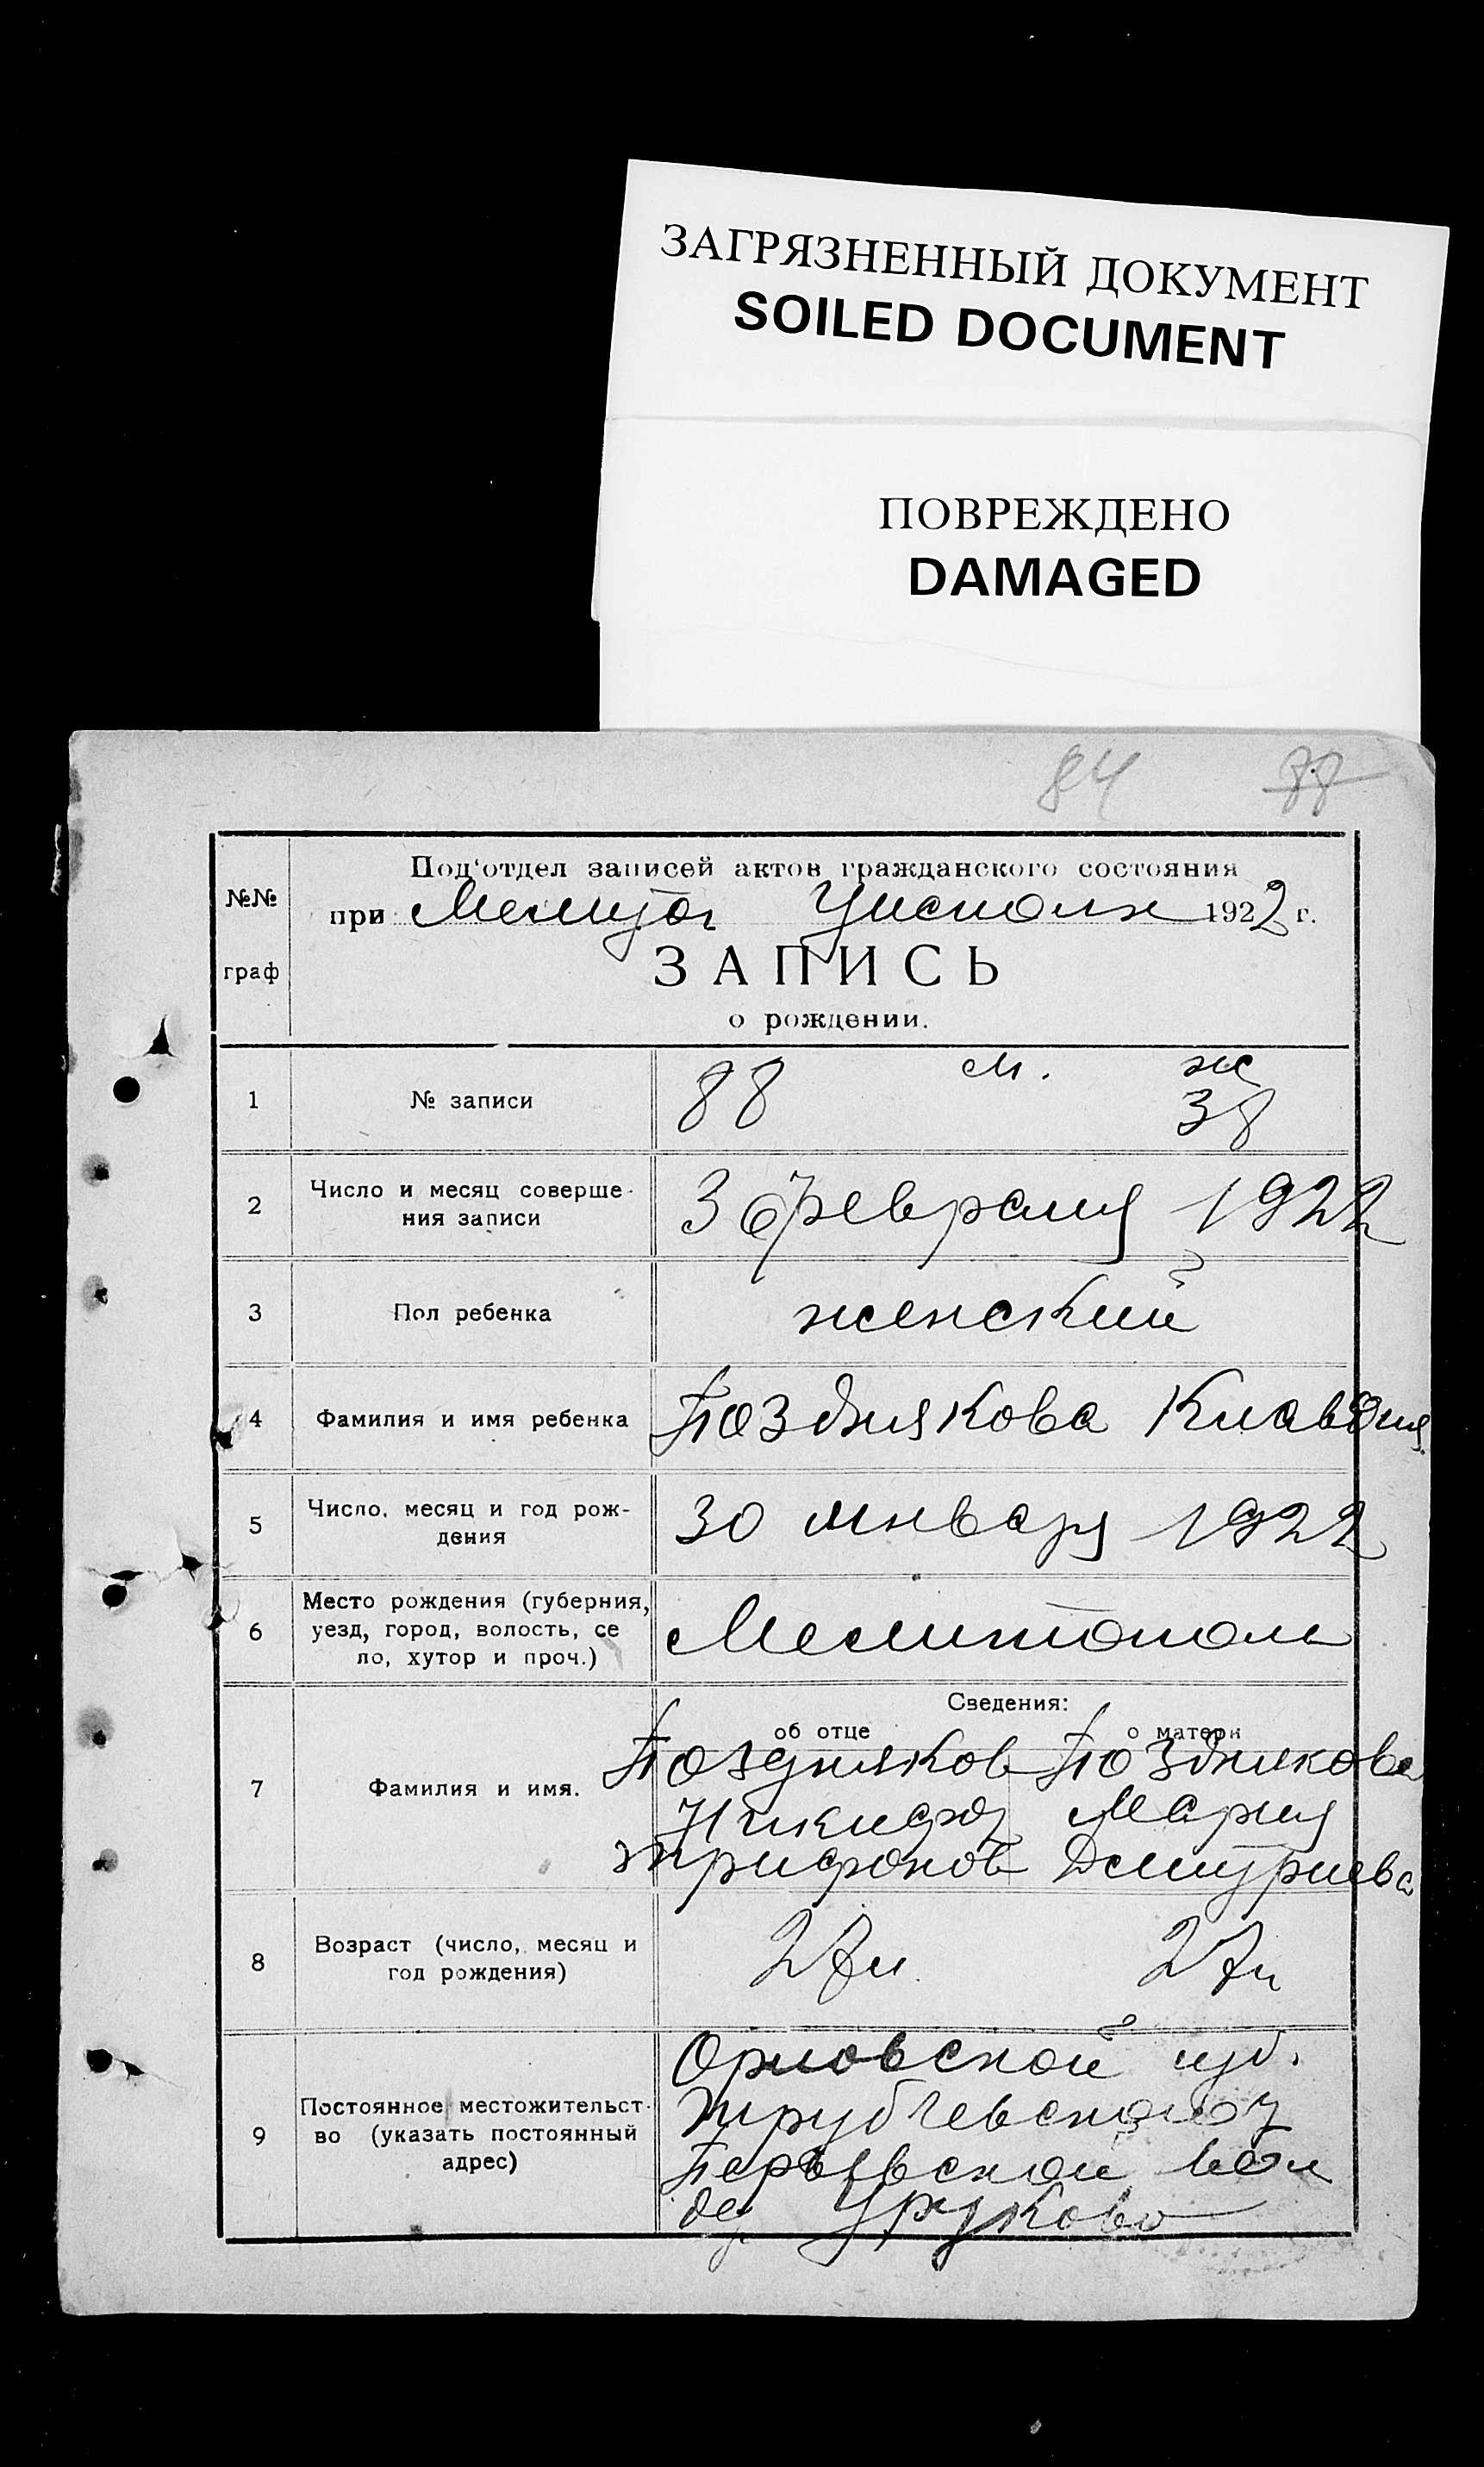 ЗАГРЯЗНЕННЫЙ ДОКУМЕНТ
SOILED DOCUMENT
ПОВРЕЖДЕНО
DAMAGED
84 88
№№ граф
Под'отдел записей актов гражданского состояния
при Мелитоп Уисполк 1922 г.
ЗАПИСЬ
о рождении.
1 № записи 88 м. ж 38
2 Число и месяц соверше-
ния записи
3 февраля 1922
3 Пол ребенка женский
4 Фамилия и имя ребенка Позднякова Клавдия
5 Число, месяц и год рож-
дения
30 января 1922
6 Место рождения (губерния,
уезд, город, волость, се
ло, хутор и проч.)
Мелитополь
Сведения:
об отце о матери
7 Фамилия и имя.
Поздняков Позднякова
Никифор Мария
Трифонов Дмитриева
8 Возраст (число, месяц и
год рождения)
27 л 27 л
9 Постоянное местожительст-
во (указать постоянный
адрес)
Орловской губ.
Трубчевского у
вол
де